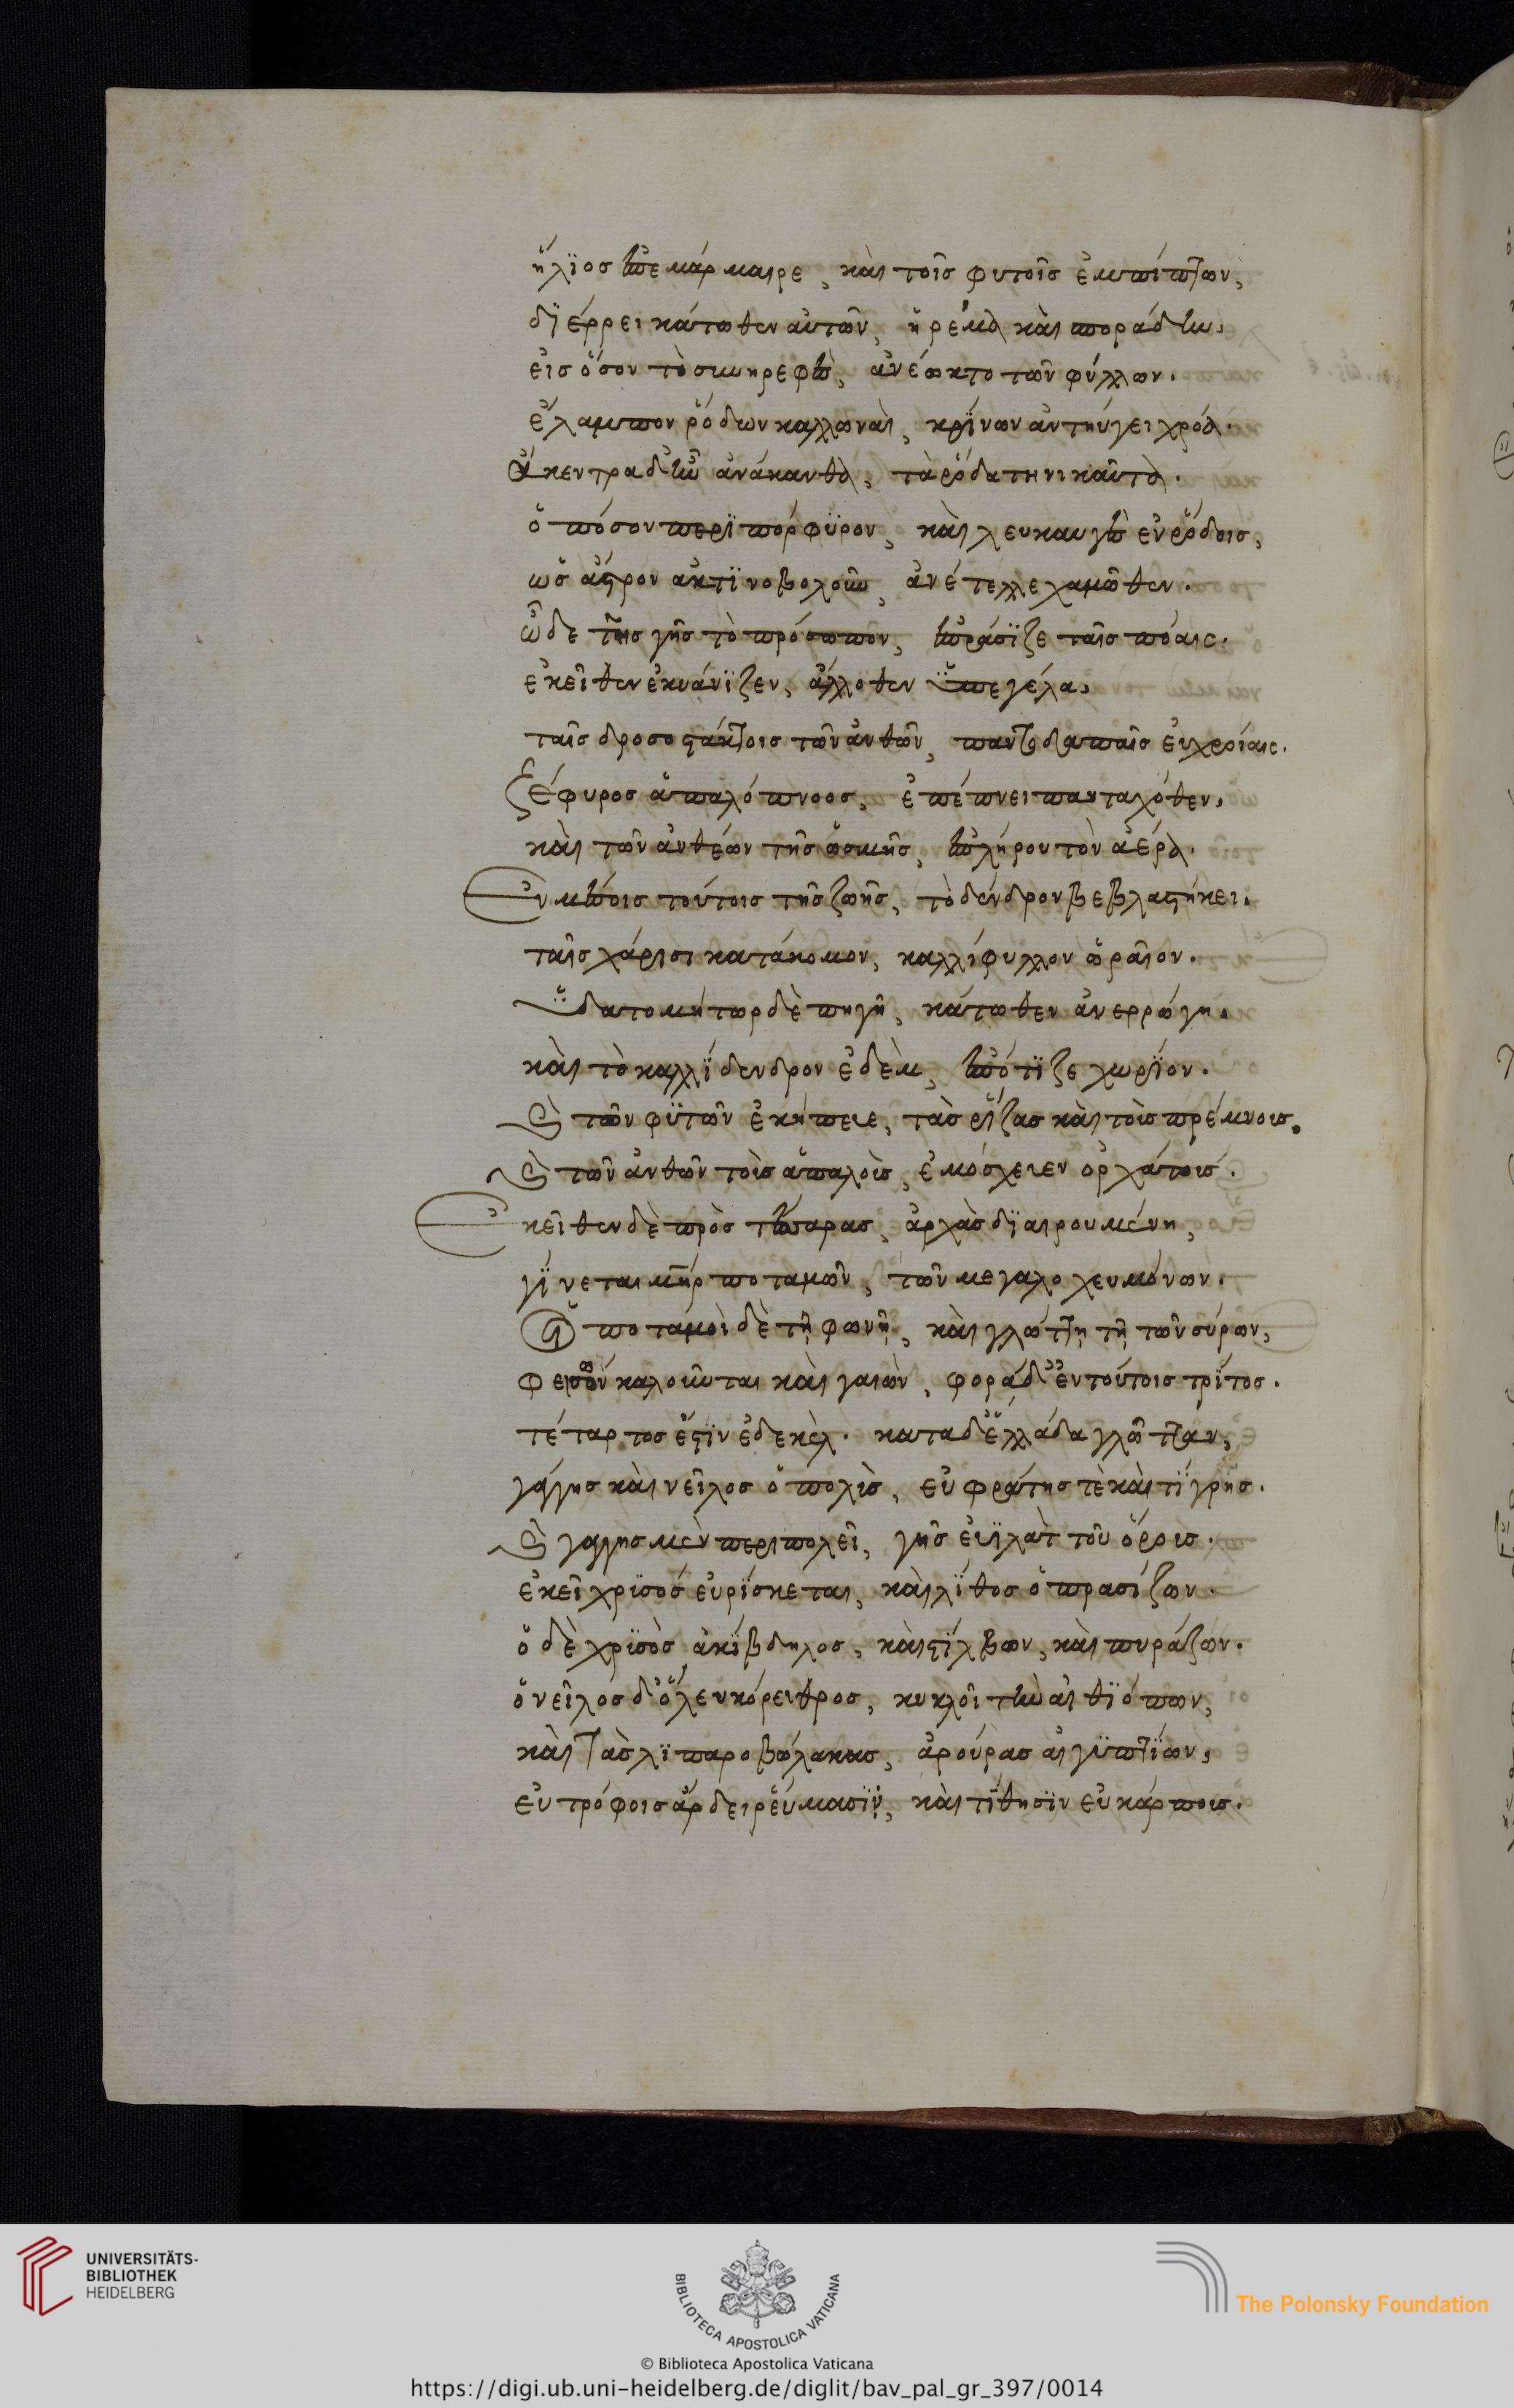 ἥλϊος ἐπεμάρμαιρε, καὶ τοῖς φυτοῖς ἐμπίπτων,
δϊέρρει κάτωθεν αὐτῶν, ἠρέμα καὶ σποράδην.
εἰς ὅσον τὸ συνηρεφὲς, ἀνέωκτο τῶν φύλλων.
ἔλαμπον ῥόδων καλλωναὶ, κρίνων ἀντηύγει χρόα.
Ἄκεντρα δ' ἦν ἀνάκανθα, τὰ ῥόδα τηνικαῦτα.
ὁπόσον περιπόρφϋρον, καὶ λευκαυγὲς ἐν ῥόδοις,
ὡς ἄστρον ἀκτϊνοβολοῦν, ἀνέτελλε χαμόθεν.
ὧδε τῆς γῆς τὸ πρόσωπον, ἐπράσϊζε ταῖς πόαις.
ἐκεῖθεν ἐκυάνϊζεν, ἄλλοθεν ὑπεγέλα,
ταῖς δροσοστάκτοις τῶν ἀνθῶν, παντοδαπαῖς εὐχροίαις.
ζέφυρος ἁπαλόπνοος, ἐπέπνει πανταχόθεν,
καὶ τῶν ἀνθέων τῆς ὀσμῆς, ἐπλήρου τὸν ἀέρα.
Ἐν μέσοις τούτοις τῆς ζωῆς, τὸ δένδρον βεβλαστήκει.
ταῖς χάρισι κατάκομον, καλλίφυλλον ὡραῖον.
Ὑδατομήτωρ δὲ πηγὴ, κάτωθεν ἀνερρώγη.
καὶ τὸ καλλϊδενδρον ἐδὲμ, ἐπότϊζε χωρίον.
Καὶ τῶν φϋτῶν ἐκήπευε, τὰς ῥίζας καὶ τοῖς πρέμνοις.
Καὶ τῶν ἀνθῶν τοῖς ἁπαλοῖς, ἐμόσχευεν ὀρχάτοις.
Ἐκεῖθεν δὲ πρὸς τέσσαρας, ἀρχὰς δϊαιρουμένη,
γίνεται μῆρ ποταμῶν, τῶν μεγαλοχευμόνων.
Οἱ ποταμοὶ δὲ τῇ φωνῇ, καὶ γλώττῃ τῇ τῶν σύρων,
Φεισὼν καλοῦνται καὶ γαιὼν, φορὰδ ἐν τούτοις τρίτος.
τέταρτος ἔστϊν ἐδεκὲλ. κατα δ' ἑλλάδα γλῶτταν,
γάγγης καὶ νεῖλος ὁ πολὺς, εὐφράτης τὲ καὶ τίγρης.
Καὶ γάγγης μὲν περιπολεῖ, γῆς εὐϊλὰτ τοὺς ὅρους.
ἐκεῖ χρϋσὸς εὑρίσκεται, καὶ λίθος ὁ πρασίζων.
ὁ δὲ χρϋσὸς ἀκίβδηλος, καὶ στίλβων, καὶ πυράζων.
ὁ νεῖλος δ' ὁ λευκόρειθρος, κυκλοῖ τὴν αἰθϊόπων,
καὶ τὰς λϊπαροβώλακας, ἀρούρας αἰγϋπτΐων,
εὐτρόφοις ἄρδει ῥεύμασϊν, καὶ τίθησϊν εὐκάρπους.
UNIVERSITÄTS-
BIBLIOTHEK
HEIDELBERG
BIBLIOTECA APOSTOLICA VATICANA
The Polonsky Foundation
© Biblioteca Apostolica Vaticana
https://digi.ub.uni-heidelberg.de/diglit/bav_pal_gr_397/0014